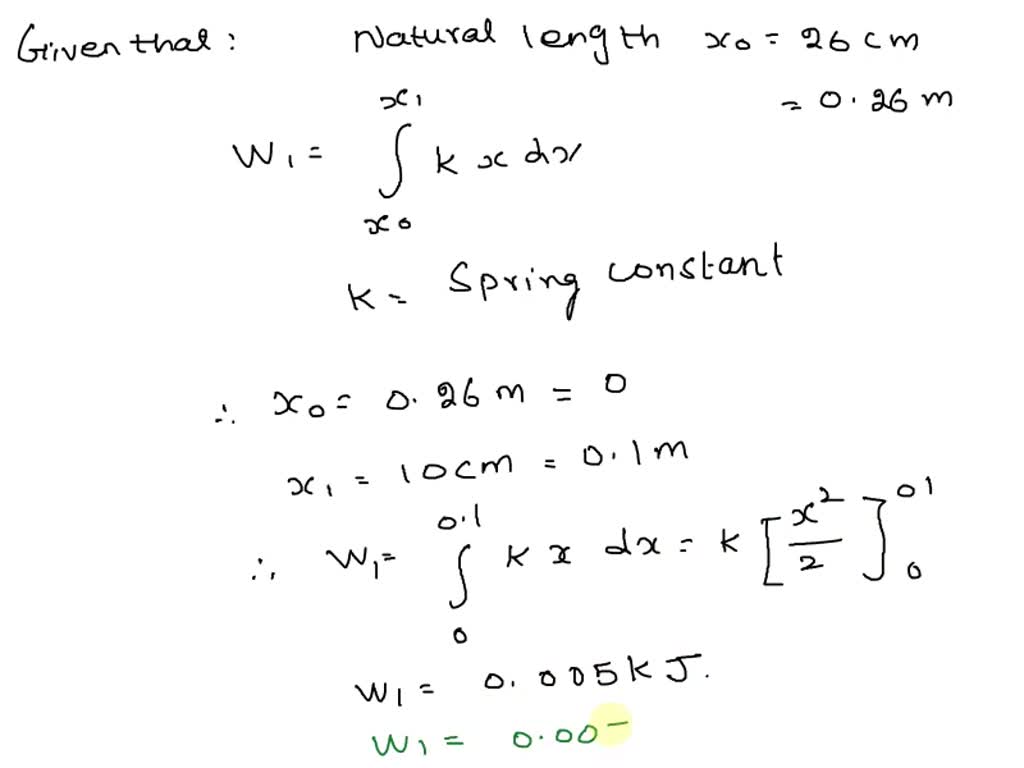 Given that : Natural length x₀ = 26 cm
= 0.26 m
W₁ = ∫ₓ₀ˣ¹ k x dx
K = Spring constant
∴ x₀ = 0.26 m = 0
x₁ = 10 cm = 0.1 m
∴ W₁ = ∫₀^0.1 K x dx = K [x²/2]₀^01
W₁ = 0.005 k J.
W₁ = 0.00